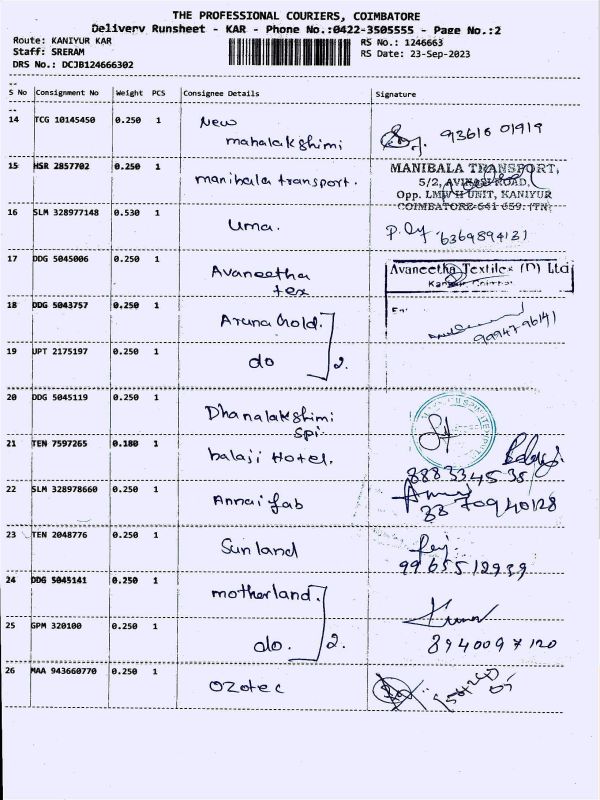 THE PROFESSIONAL COURIERS, COIMBATORE
Delivery Runsheet - KAR - Phone No.:0422-3505555 - Page No.:2
Route: KANIYUR KAR
RS No.: 1246663
Staff: SRERAM
RS Date: 23-Sep-2023
DRS No.: DCJB124666302
S No Consignment No Weight PCS Consignee Details Signature
14 TCG 10145450 0.250 1 New mahalakshimi 93616 01919
15 HSR 2857702 0.250 1 manibala transport.
MANIBALA TRANSPORT,
5/2, AVINASI ROAD,
Opp. LMW II UNIT, KANIYUR
COIMBATORE-641 659. (TN)
16 SLM 328977148 0.530 1 Uma. 6369894131
17 DDG 5045006 0.250 1 Avaneetha tex
Avaneetha Textiles (P) Ltd
18 DDG 5043757 0.250 1 Aruna Gold.
9994796141
19 UPT 2175197 0.250 1 do 2.
20 DDG 5045119 0.250 1 Dhanalakshimi Spi.
21 TEN 7597265 0.180 1 balaji Hotel.
8883345351
22 SLM 328978660 0.250 1 Annai fab
23 TEN 2048776 0.250 1 Sunland
9965512939
24 DDG 5045141 0.250 1 motherland.
25 GPM 320100 0.250 1 do. 2. Kumar
8940097120
26 MAA 943660770 0.250 1 Ozotec